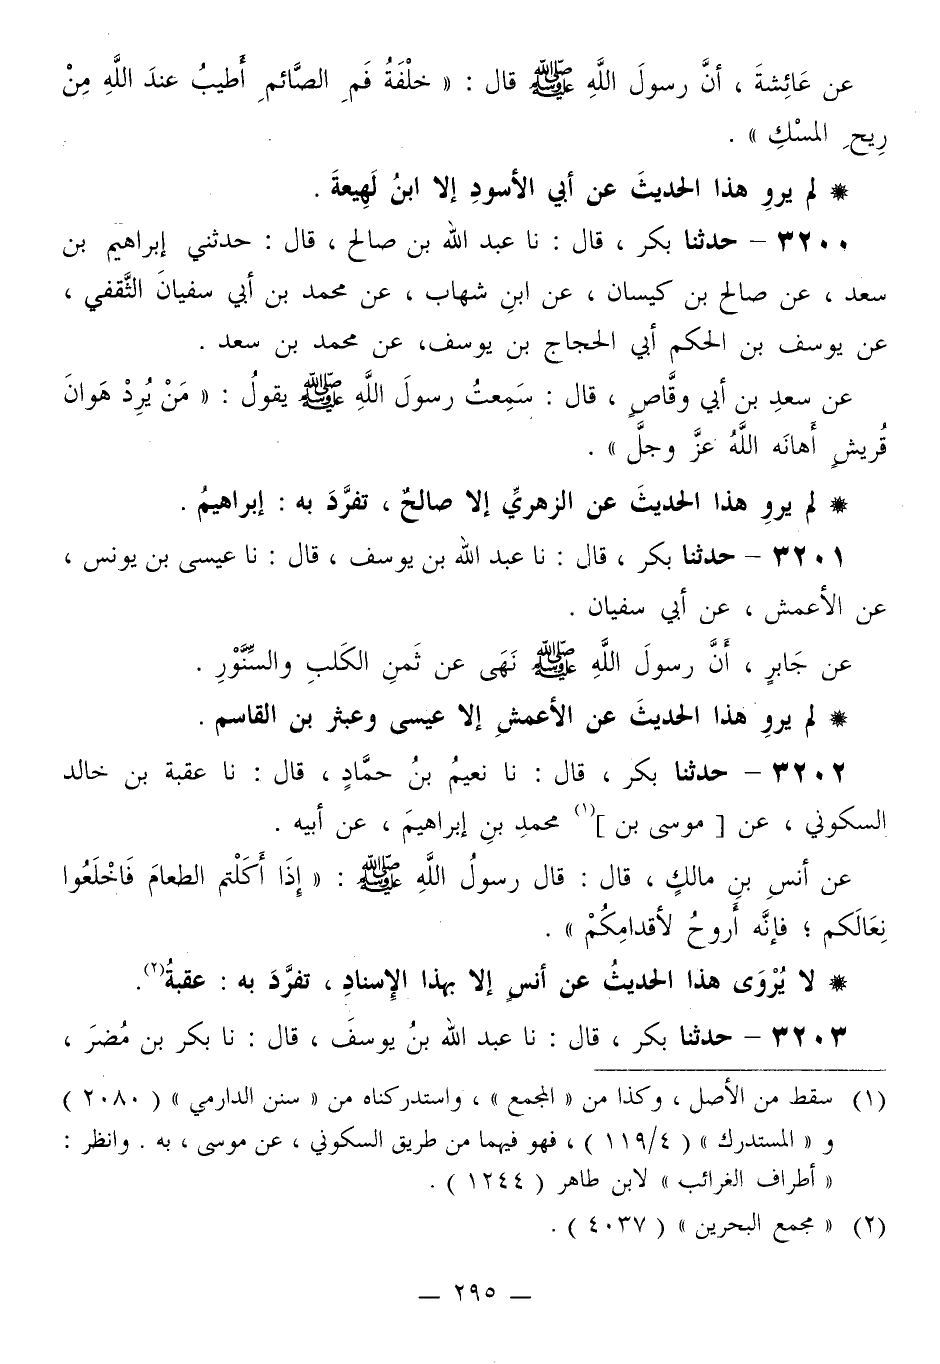 عن عَائِشةَ ، أنَّ رسولَ اللَّهِ ﷺ قال : « خلْفَةُ فَمِ الصَّائمِ أَطيبُ عندَ اللَّهِ مِنْ
رِيحِ المسْكِ » .
* لم يروِ هذا الحديثَ عن أبي الأسودِ إلا ابنُ لَهِيعةَ .
٣٢٠٠ – حدثنا بكر ، قال : نا عبد الله بن صالح ، قال : حدثني إبراهيم بن
سعد ، عن صالح بن كيسان ، عن ابنِ شهاب ، عن محمد بن أبي سفيانَ الثَّقفي ،
عن يوسف بن الحكم أبي الحجاج بن يوسف، عن محمد بن سعد .
عن سعدِ بن أبي وقَّاصٍ ، قال : سَمِعتُ رسولَ اللَّهِ ﷺ يقولُ : « مَنْ يُرِدْ هَوانَ
قُريشٍ أَهانَه اللَّهُ عزَّ وجلَّ » .
* لم يروِ هذا الحديثَ عن الزهريِّ إلا صالحٌ ، تفرَّدَ به : إبراهيمُ .
٣٢٠١ – حدثنا بكر ، قال : نا عبد الله بن يوسف ، قال : نا عيسى بن يونس ،
عن الأعمش ، عن أبي سفيان .
عن جَابرٍ ، أَنَّ رسولَ اللَّهِ ﷺ نَهَى عن ثَمنِ الكَلبِ والسِّنَّوْرِ .
* لم يروِ هذا الحديثَ عن الأعمشِ إلا عيسى وعبثر بن القاسم .
٣٢٠٢ – حدثنا بكر ، قال : نا نعيمُ بنُ حمَّادٍ ، قال : نا عقبة بن خالد
السكوني ، عن [ موسى بن ](١) محمدِ بنِ إبراهيمَ ، عن أبيه .
عن أنسِ بنِ مالكٍ ، قال : قال رسولُ اللَّهِ ﷺ : « إِذَا أَكَلْتم الطعامَ فَاخْلَعُوا
نِعَالَكم ؛ فإنَّه أَروحُ لأقدامِكُمْ » .
* لا يُرْوَى هذا الحديثُ عن أنسٍ إلا بهذا الإسنادِ ، تفرَّدَ به : عقبةُ(٢).
٣٢٠٣ – حدثنا بكر ، قال : نا عبد الله بنُ يوسفَ ، قال : نا بكر بن مُضرَ ،
(١) سقط من الأصل ، وكذا من « المجمع » ، واستدركناه من « سنن الدارمي » ( ٢٠٨٠ )
و « المستدرك » ( ١١٩/٤ ) ، فهو فيهما من طريق السكوني ، عن موسى ، به . وانظر :
« أطراف الغرائب » لابن طاهر ( ١٢٤٤ ) .
(٢) « مجمع البحرين » ( ٤٠٣٧ ) .
— ٢٩٥ —